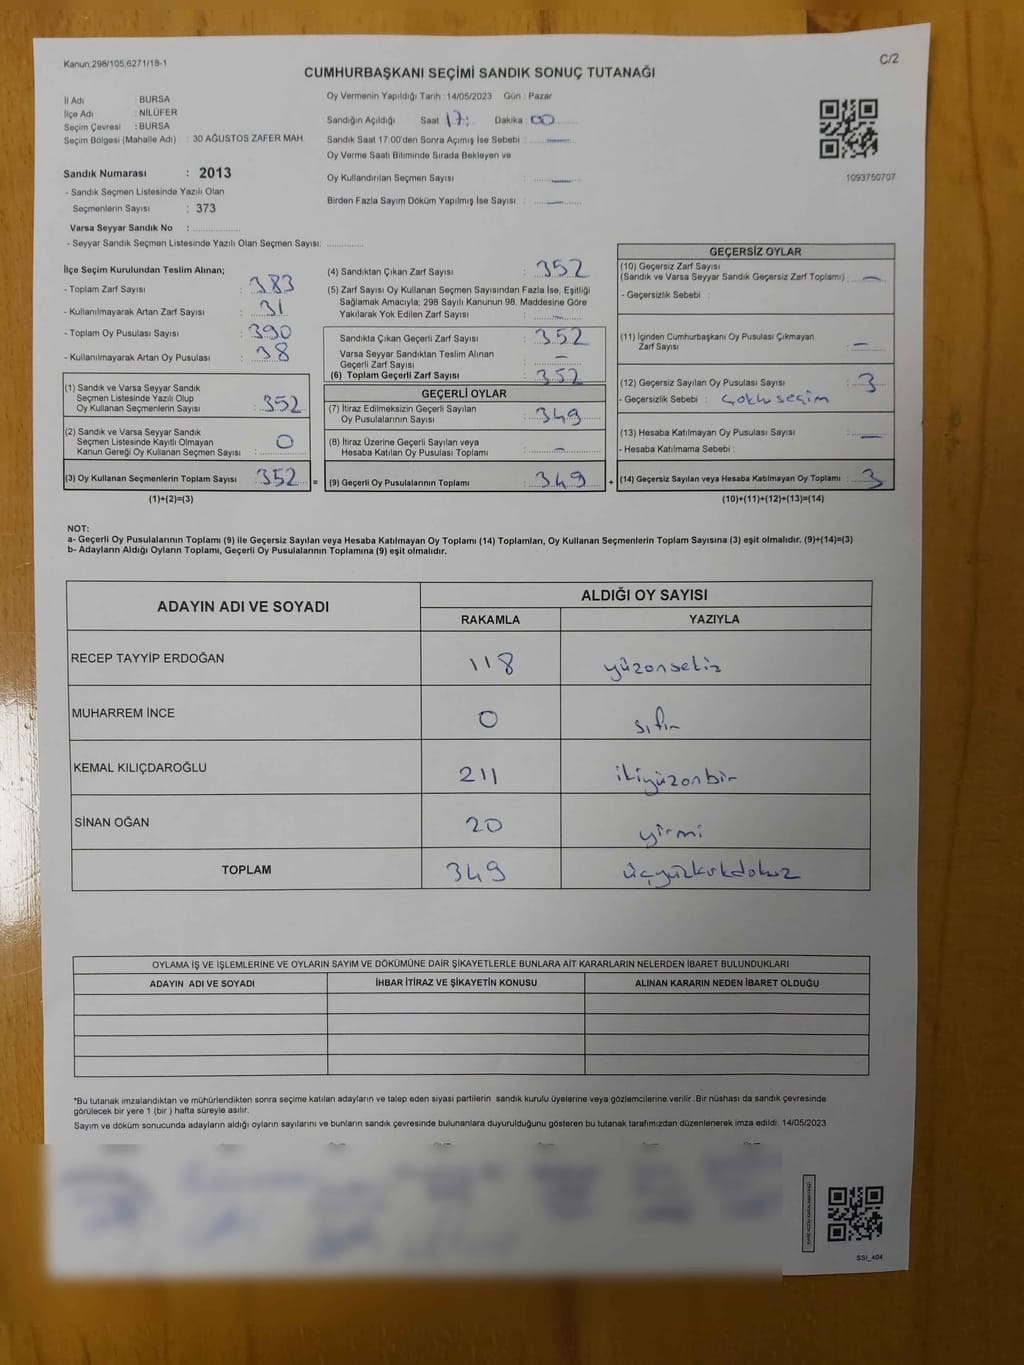 Kanun;298/105;6271/18-1
C/2
CUMHURBAŞKANI SEÇİMİ SANDIK SONUÇ TUTANAĞI
İl Adı : BURSA
İlçe Adı : NİLÜFER
Seçim Çevresi : BURSA
Seçim Bölgesi (Mahalle Adı) : 30 AĞUSTOS ZAFER MAH.
Sandık Numarası : 2013
- Sandık Seçmen Listesinde Yazılı Olan
Seçmenlerin Sayısı : 373
Varsa Seyyar Sandık No :
- Seyyar Sandık Seçmen Listesinde Yazılı Olan Seçmen Sayısı:
Oy Vermenin Yapıldığı Tarih : 14/05/2023 Gün : Pazar
Sandığın Açıldığı Saat 17: Dakika : 00
Sandık Saat 17:00'den Sonra Açımış İse Sebebi : —
Oy Verme Saati Bitiminde Sırada Bekleyen ve
Oy Kullandırılan Seçmen Sayısı : —
Birden Fazla Sayım Döküm Yapılmış İse Sayısı : —
1093750707
İlçe Seçim Kurulundan Teslim Alınan;
- Toplam Zarf Sayısı : 383
- Kullanılmayarak Artan Zarf Sayısı : 31
- Toplam Oy Pusulası Sayısı : 390
- Kullanılmayarak Artan Oy Pusulası : 38
(1) Sandık ve Varsa Seyyar Sandık
Seçmen Listesinde Yazılı Olup
Oy Kullanan Seçmenlerin Sayısı : 352
(2) Sandık ve Varsa Seyyar Sandık
Seçmen Listesinde Kayıtlı Olmayan
Kanun Gereği Oy Kullanan Seçmen Sayısı : 0
(3) Oy Kullanan Seçmenlerin Toplam Sayısı : 352 =
(1)+(2)=(3)
(4) Sandıktan Çıkan Zarf Sayısı : 352
(5) Zarf Sayısı Oy Kullanan Seçmen Sayısından Fazla İse, Eşitliği
Sağlamak Amacıyla; 298 Sayılı Kanunun 98. Maddesine Göre
Yakılarak Yok Edilen Zarf Sayısı : —
Sandıkta Çıkan Geçerli Zarf Sayısı : 352
Varsa Seyyar Sandıktan Teslim Alınan
Geçerli Zarf Sayısı : —
(6) Toplam Geçerli Zarf Sayısı : 352
GEÇERLİ OYLAR
(7) İtiraz Edilmeksizin Geçerli Sayılan
Oy Pusulalarının Sayısı : 349
(8) İtiraz Üzerine Geçerli Sayılan veya
Hesaba Katılan Oy Pusulası Toplamı : —
(9) Geçerli Oy Pusulalarının Toplamı : 349 +
GEÇERSİZ OYLAR
(10) Geçersiz Zarf Sayısı
(Sandık ve Varsa Seyyar Sandık Geçersiz Zarf Toplamı) : —
- Geçersizlik Sebebi :
(11) İçinden Cumhurbaşkanı Oy Pusulası Çıkmayan
Zarf Sayısı : —
(12) Geçersiz Sayılan Oy Pusulası Sayısı : 3
- Geçersizlik Sebebi : Çoklu seçim
(13) Hesaba Katılmayan Oy Pusulası Sayısı : —
- Hesaba Katılmama Sebebi :
(14) Geçersiz Sayılan veya Hesaba Katılmayan Oy Toplamı : 3
(10)+(11)+(12)+(13)=(14)
NOT:
a- Geçerli Oy Pusulalarının Toplamı (9) ile Geçersiz Sayılan veya Hesaba Katılmayan Oy Toplamı (14) Toplamları, Oy Kullanan Seçmenlerin Toplam Sayısına (3) eşit olmalıdır. (9)+(14)=(3)
b- Adayların Aldığı Oyların Toplamı, Geçerli Oy Pusulalarının Toplamına (9) eşit olmalıdır.
ADAYIN ADI VE SOYADI ALDIĞI OY SAYISI
RAKAMLA YAZIYLA
RECEP TAYYİP ERDOĞAN 118 yüzonsekiz
MUHARREM İNCE 0 sıfır
KEMAL KILIÇDAROĞLU 211 ikiyüzonbir
SİNAN OĞAN 20 yirmi
TOPLAM 349 üçyüzkırkdokuz
OYLAMA İŞ VE İŞLEMLERİNE VE OYLARIN SAYIM VE DÖKÜMÜNE DAİR ŞİKAYETLERLE BUNLARA AİT KARARLARIN NELERDEN İBARET BULUNDUKLARI
ADAYIN ADI VE SOYADI İHBAR İTİRAZ VE ŞİKAYETİN KONUSU ALINAN KARARIN NEDEN İBARET OLDUĞU
*Bu tutanak imzalandıktan ve mühürlendikten sonra seçime katılan adayların ve talep eden siyasi partilerin sandık kurulu üyelerine veya gözlemcilerine verilir. Bir nüshası da sandık çevresinde
görülecek bir yere 1 (bir ) hafta süreyle asılır.
Sayım ve döküm sonucunda adayların aldığı oyların sayılarını ve bunların sandık çevresinde bulunanlara duyurulduğunu gösteren bu tutanak tarafımızdan düzenlenerek imza edildi. 14/05/2023
SSI_404